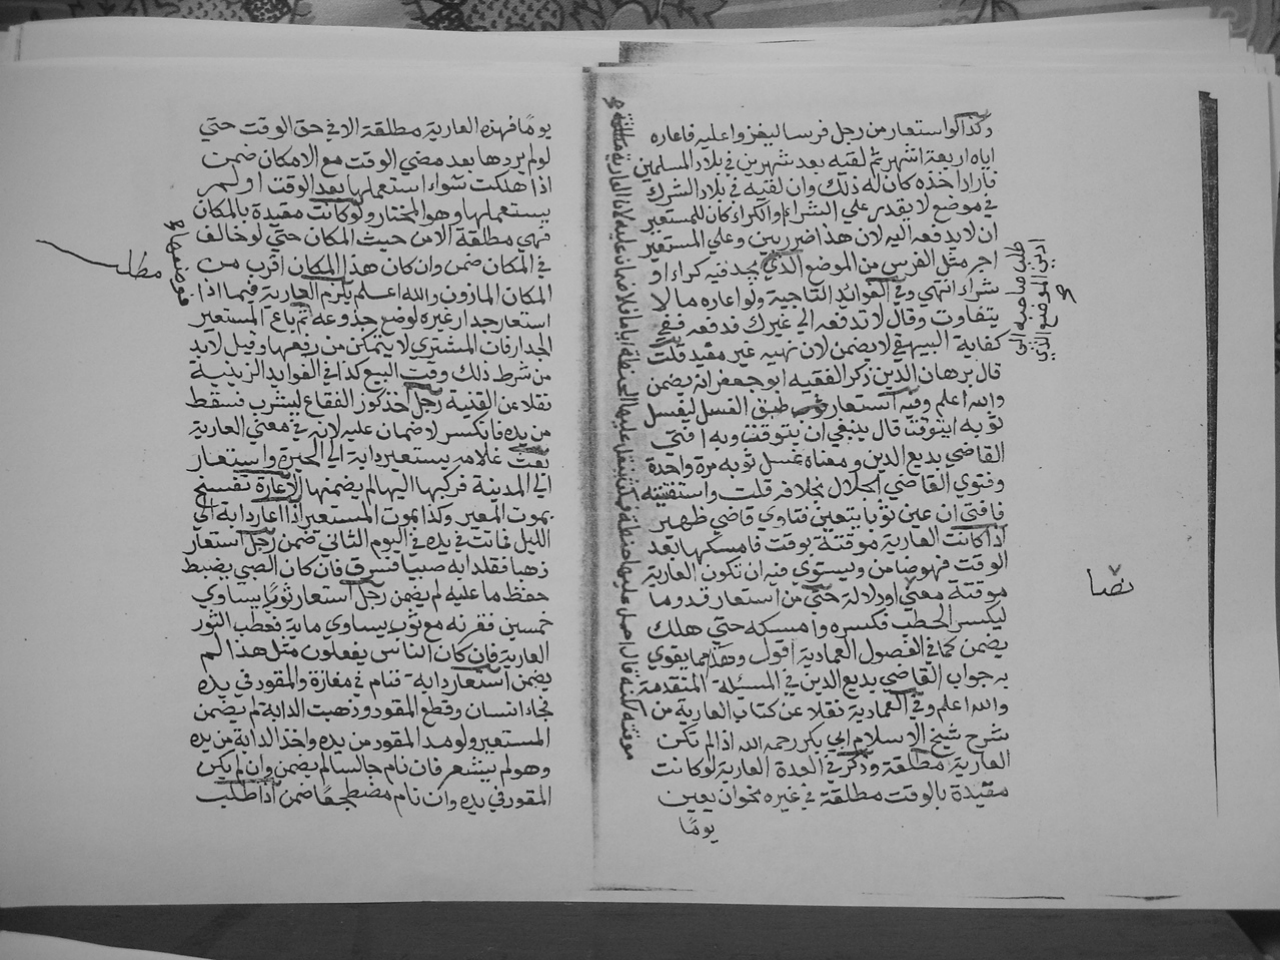 وكذا لو استعار من رجل فرسا ليغزوا عليه فاعاره
اياه اربعة اشهر ثم لقيه بعد شهرين في بلاد المسلمين
فاراد اخذه كان له ذلك وان لقيه في بلاد الشرك
في موضع لا يقدر علي الشراء والكراء كان للمستعير
ان لا يدفعه اليه لان هذا ضرر بين وعلي المستعير
اجر مثل الفرس من الموضع الذي يجد فيه كراء او
شراء انتهي وفي الفوائد التاجية ولو اعاره ما لا
يتفاوت وقال لا تدفعه الي غيرك فدفعه ففي
كفاية البيهقي لا يضمن لان نهيه غير مفيد قلت
قال برهان الدين ذكر الفقيه ابو جعفر انه يضمن
والله اعلم وفيه استعار طبق الغسل ليغسل
ثوبه ايتوقت قال ينبغي ان يتوقت وبه افتي
القاضي بديع الدين ومعناه غسل ثوبه مرة واحدة
وفتوي القاضي الجلال بخلافه قلت واستفتيته
فافتي ان عين ثوبا يتعين فتاوي قاضي ظهير
اذا كانت العارية موقتة بوقت فامسكها بعد
الوقت فهو ضامن ويستوي فيه ان تكون العارية
موقتة معني او دلالة حتي من استعار قدوما
ليكسر الحطب فكسره وامسكه حتي هلك
يضمن كما في الفصول العمادية اقول وهذا مما يقوي
به جواب القاضي بديع الدين في المسئلة المتقدمة
والله اعلم وفي العمادية نقلا عن كتاب العارية من
شرح شيخ الاسلام ابي بكر رحمه الله اذا لم تكن
العارية مطلقة وذكر في العدة العارية لو كانت
مقيدة بالوقت مطلقة في غيره نحو ان يعين
يومًا
طلب صاحبه الي
ادني الموضع الذي
يوما فهذه العارية مطلقة الا في حق الوقت حتي
لو لم يردها بعد مضي الوقت مع الامكان ضمن
اذا هلكت سواء استعملها بعد الوقت او لم
يستعملها وهو المختار ولو كانت مقيدة بالمكان
فهي مطلقة الا من حيث المكان حتي لو خالف
في المكان ضمن وان كان هذا المكان اقرب من
المكان الماذون والله اعلم يلزم العارية فيما اذا
استعار جدار غيره لوضع جذوعه ثم باع المستعير
الجدار فان المشتري لا يتمكن من رفعها وقيل لا بد
من شرط ذلك وقت البيع كذا في الفوايد الزينية
نقلا عن القنية رجل اخذ كوز الفقاع ليشرب فسقط
من يده فانكسر لا ضمان عليه لانه في معني العارية
بعث غلامه يستعير دابة الي الحيرة واستعار
الي المدينة فركبها اليها لم يضمنها الاعارة تنفسخ
بموت المعير وكذا بموت المستعير اذا اعار دابة الي
الليل فماتت في يده في اليوم الثاني ضمن رجل استعار
ذهبا فقلدا به صبيا فسرق فان كان الصبي يضبط
حفظ ما عليه لم يضمن رجل استعار ثورًا يساوي
خمسين فقرنه مع ثور يساوي ماية فعطب الثور
العارية فان كان الناس يفعلون مثل هذا لم
يضمن استعار دابة فنام في مفازة والمقود في يده
فجاء انسان وقطع المقود وذهبت الدابة لم يضمن
المستعير ولو مد المقود من يده واخذ الدابة من يده
وهو لم يشعر فان نام جالسا لم يضمن وان لم يكن
المقود في يده وان نام مضطجعًا ضمن اذا طلب
مطلب